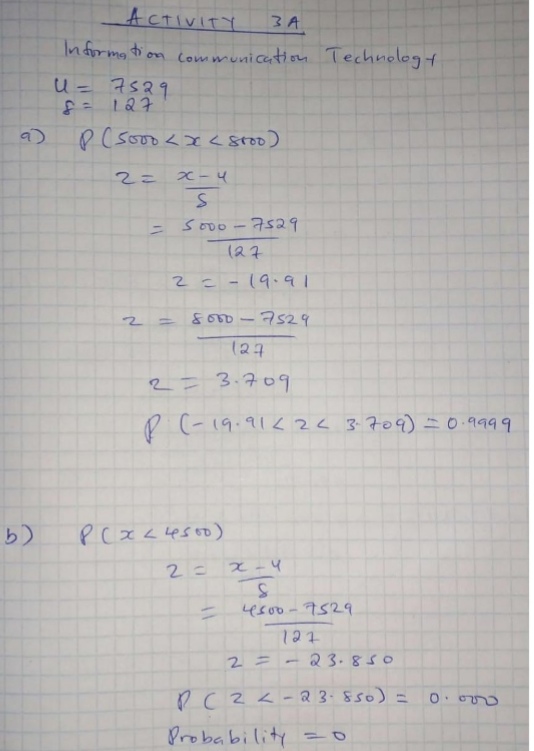 ACTIVITY 3A
Information communication Technology
U = 7529
s = 127
a) P(5000 < x < 8000)
z = x - u
s
= 5000 - 7529
127
z = -19.91
z = 8000 - 7529
127
z = 3.709
P (-19.91 < z < 3.709) = 0.9999
b) P(x < 4500)
z = x - u
s
= 4500 - 7529
127
z = -23.850
P( z < -23.850) = 0.000
Probability = 0